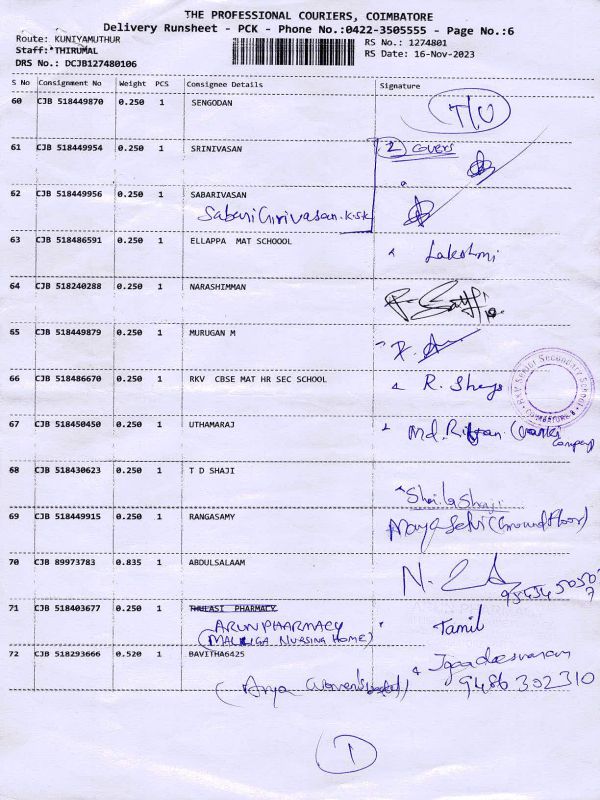 THE PROFESSIONAL COURIERS, COIMBATORE
Delivery Runsheet - PCK - Phone No.:0422-3505555 - Page No.:6
Route: KUNIYAMUTHUR
RS No.: 1274801
Staff: THIRUMAL
RS Date: 16-Nov-2023
DRS No.: DCJB127480106
S No Consignment No Weight PCS Consignee Details Signature
60 CJB 518449870 0.250 1 SENGODAN T/U
61 CJB 518449954 0.250 1 SRINIVASAN 2 covers
62 CJB 518449956 0.250 1 SABARIVASAN
SabariGirivasan.K.S.K
63 CJB 518486591 0.250 1 ELLAPPA MAT SCHOOOL Lakshmi
64 CJB 518240288 0.250 1 NARASHIMMAN
65 CJB 518449879 0.250 1 MURUGAN M
66 CJB 518486670 0.250 1 RKV CBSE MAT HR SEC SCHOOL R.
RKV Senior Secondary School COIMBATORE
67 CJB 518450450 0.250 1 UTHAMARAJ Md.
Company)
68 CJB 518430623 0.250 1 T D SHAJI
Shaila Shaji
69 CJB 518449915 0.250 1 RANGASAMY (Ground Floor)
70 CJB 89973783 0.835 1 ABDULSALAAM N.
71 CJB 518403677 0.250 1 THULASI PHARMACY
ARUN PHARMACY Tamil
(MALLIGA NURSING HOME)
72 CJB 518293666 0.520 1 BAVITHA6425 Jgadeeswaran
(Arya Women's 9486302310
1